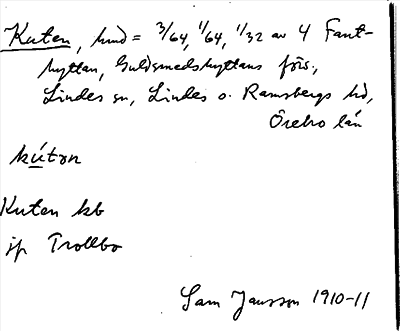 Kuten, hmd = 3/64, 1/64, 1/32 av 4 Fant-
hyttan, Guldsmedshyttans förs.,
Lindes sn, Lindes o. Ramsbergs hd,
Örebro län
kút∂n
Kuten kb
jp Trollbo
Sam Jansson 1910-11